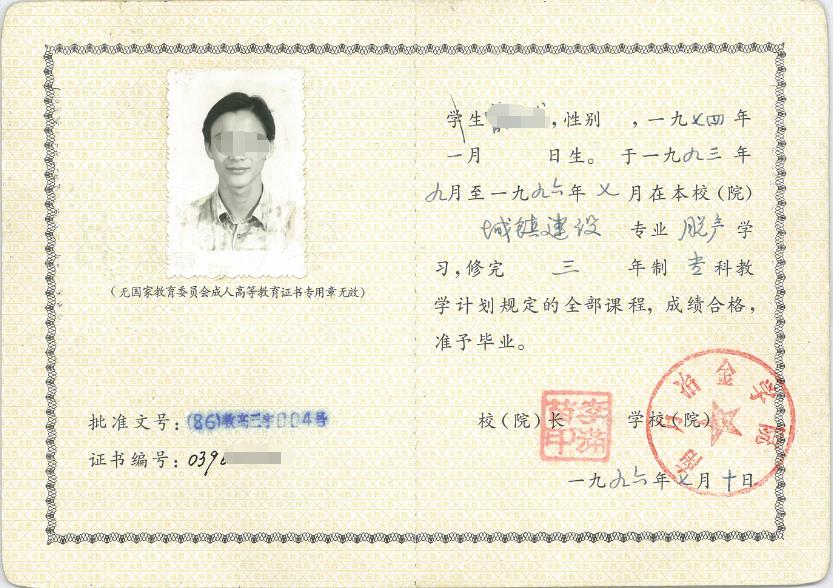 (无国家教育委员会成人高等教育证书专用章无效)
批准文号:(86)教高三字004号
证书编号:039
学生 ,性别 ,一九七四年
一月 日生。于一九九三年
九月至一九九六年七月在本校(院)
城镇建设 专业 脱产 学
习,修完 三 年制 专科教
学计划规定的全部课程,成绩合格,
准予毕业。
校(院)长 学校(院)
冶金学院
一九九六年七月十日